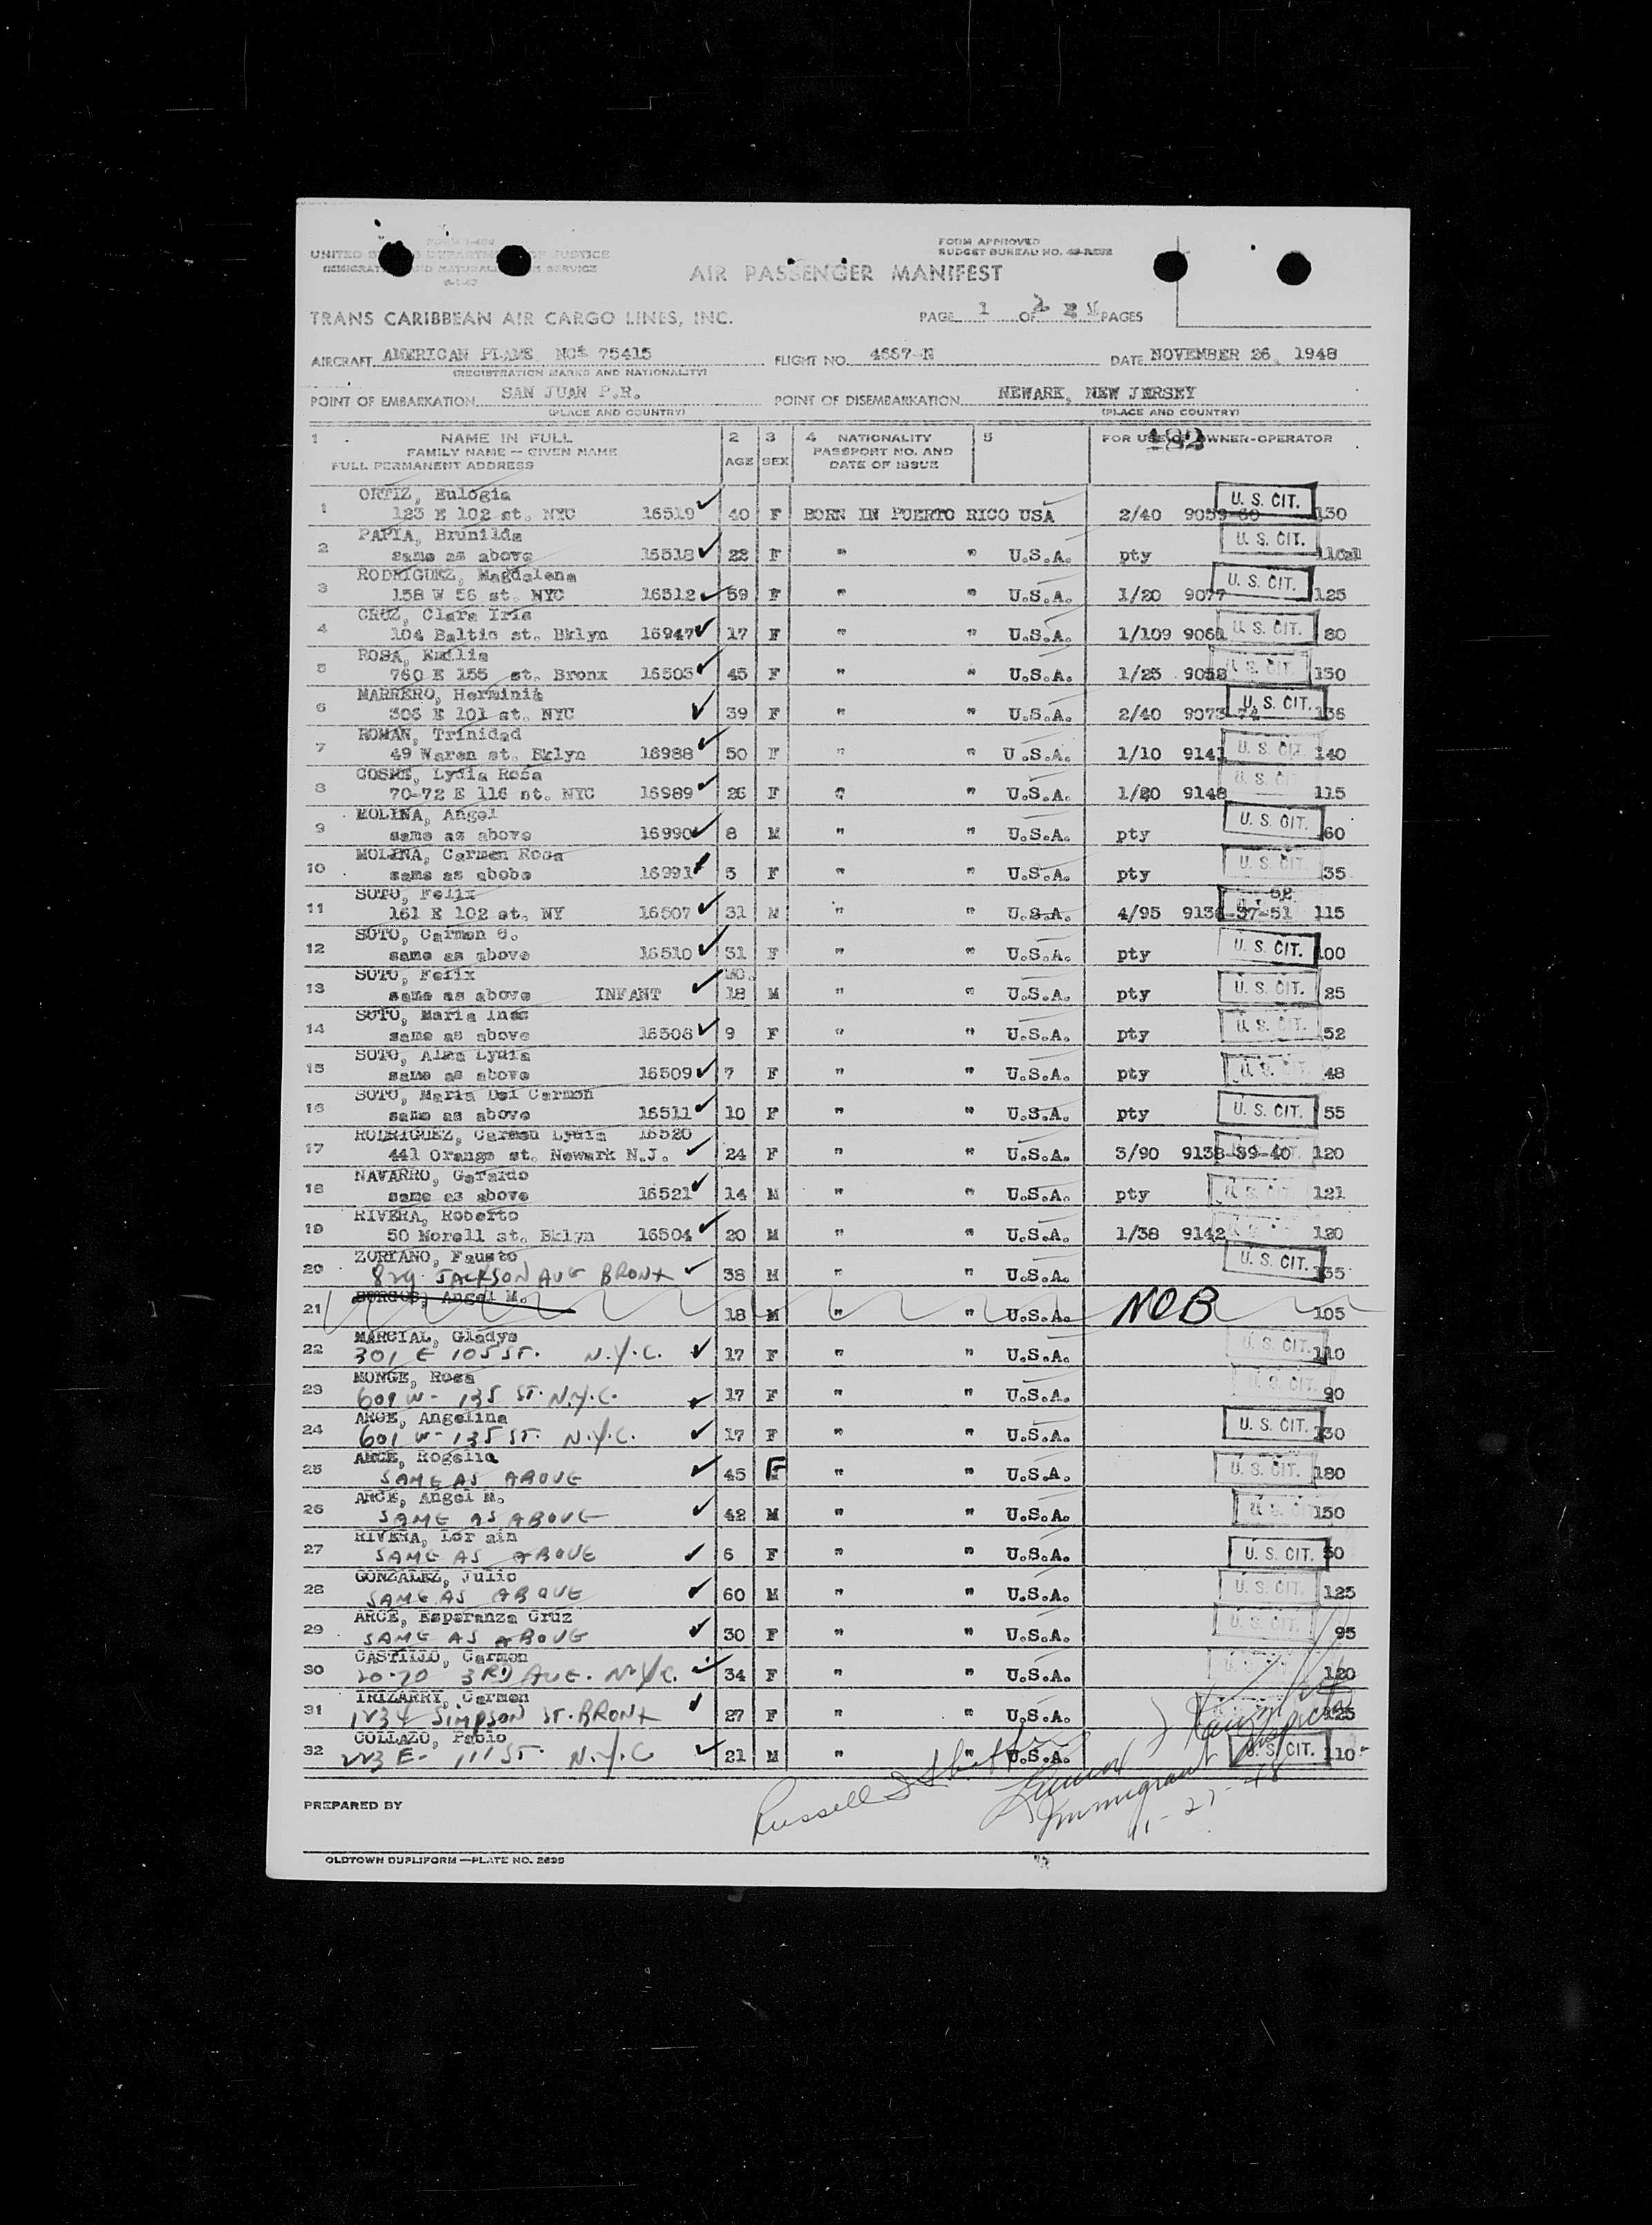 FORM I-466
UNITED STATES DEPARTMENT OF JUSTICE
IMMIGRATION AND NATURALIZATION SERVICE
FORM APPROVED
BUDGET BUREAU NO.
AIR PASSENGER MANIFEST
TRANS CARIBBEAN AIR CARGO LINES, INC.
PAGE 1 OF 2 PAGES
AIRCRAFT AMERICAN PLANE NC# 75415 FLIGHT NO. 4667-N DATE NOVEMBER 26, 1948
(REGISTRATION MARKS AND NATIONALITY)
POINT OF EMBARKATION SAN JUAN P.R. POINT OF DISEMBARKATION NEWARK, NEW JERSEY
(PLACE AND COUNTRY) (PLACE AND COUNTRY)
1 NAME IN FULL 2 3 4 NATIONALITY 5 FOR USE OF OWNER-OPERATOR
FAMILY NAME — GIVEN NAME AGE SEX PASSPORT NO. AND
FULL PERMANENT ADDRESS DATE OF ISSUE
182
ORTIZ, Eulogia
1 123 E 102 st. NYC 16519 40 F BORN IN PUERTO RICO USA 2/40 9059-60 U. S. CIT. 130
PAPIA, Brunilda
2 same as above 16518 22 F " " U.S.A. pty U. S. CIT.
RODRIGUEZ, Magdalena
3 158 W 56 st. NYC 16512 59 F " " U.S.A. 1/20 9077 U. S. CIT. 125
CRUZ, Clara Iris
4 104 Baltic st. Bklyn 16947 17 F " " U.S.A. 1/109 9061 U. S. CIT. 80
ROSA, Emilia
5 760 E 155 st. Bronx 16503 45 F " " U.S.A. 1/25 9058 U. S. CIT. 130
MARRERO, Herminia
6 306 E 101 st. NYC 39 F " " U.S.A. 2/40 9073-74 U. S. CIT. 136
ROMAN, Trinidad
7 49 Waren st. Bklyn 16988 50 F " " U.S.A. 1/10 9141 U. S. CIT. 140
COSME, Lydia Rosa
8 70-72 E 116 st. NYC 16989 26 F " " U.S.A. 1/20 9148 U. S. CIT. 115
MOLINA, Angel
9 same as above 16990 8 M " " U.S.A. pty U. S. CIT. 60
MOLINA, Carmen Rosa
10 same as abobe 16991 5 F " " U.S.A. pty U. S. CIT. 35
SOTO, Felix
11 161 E 102 st. NY 16507 31 M " " U.S.A. 4/95 9136-37-51 52 115
SOTO, Carmen G.
12 same as above 16510 31 F " " U.S.A. pty U. S. CIT. 100
SOTO, Felix MO.
13 same as above INFANT 18 M " " U.S.A. pty U. S. CIT. 25
SOTO, Maria Ines
14 same as above 16506 9 F " " U.S.A. pty U. S. CIT. 52
SOTO, Alma Lydia
15 same as above 16509 7 F " " U.S.A. pty U. S. CIT. 48
SOTO, Maria Del Carmen
16 same as above 16511 10 F " " U.S.A. pty U. S. CIT. 55
RODRIGUEZ, Carmen Lydia 16520
17 441 Orange st. Newark N.J. 24 F " " U.S.A. 3/90 9138-39-40 120
NAVARRO, Gerardo
18 same as above 16521 14 M " " U.S.A. pty U. S. CIT. 121
RIVERA, Roberto
19 50 Norell st. Bklyn 16504 20 M " " U.S.A. 1/38 9142 U. S. CIT. 120
ZORIANO, Fausto
20 829 JACKSON AVE BRONX 38 M " " U.S.A. U. S. CIT. 135
BURGOS, Angel M.
21 18 M " " U.S.A. NOB 105
MARCIAL, Gladys
22 301 E 105 ST. N.Y.C. 17 F " " U.S.A. U. S. CIT. 110
MONGE, Rosa
23 609 W- 135 ST. N.Y.C. 17 F " " U.S.A. U. S. CIT. 90
ARCE, Angelina
24 601 W- 135 ST. N.Y.C. 17 F " " U.S.A. U. S. CIT. 130
ARCE, Rogelia
25 SAME AS ABOVE 45 F " " U.S.A. U. S. CIT. 180
ARCE, Angel M.
26 SAME AS ABOVE 42 M " " U.S.A. U. S. CIT. 150
RIVERA, Lor ain
27 SAME AS ABOVE 6 F " " U.S.A. U. S. CIT. 50
GONZALEZ, Julio
28 SAME AS ABOVE 60 M " " U.S.A. U. S. CIT. 125
ARCE, Esperanza Cruz
29 SAME AS ABOVE 30 F " " U.S.A. U. S. CIT. 95
CASTILLO, Carmen
30 20-70 3RD AVE. N.Y.C. 34 F " " U.S.A. 120
IRIZARRY, Carmen
31 1234 SIMPSON ST. BRONX 27 F " " U.S.A. 125
COLLAZO, Pablo
32 223 E- 111 ST. N.Y.C 21 M " " U.S.A. U. S. CIT. 110
PREPARED BY
Russell
Immigrant Inspector
11-27-48
OLDTOWN DUPLIFORM—PLATE NO. 2695